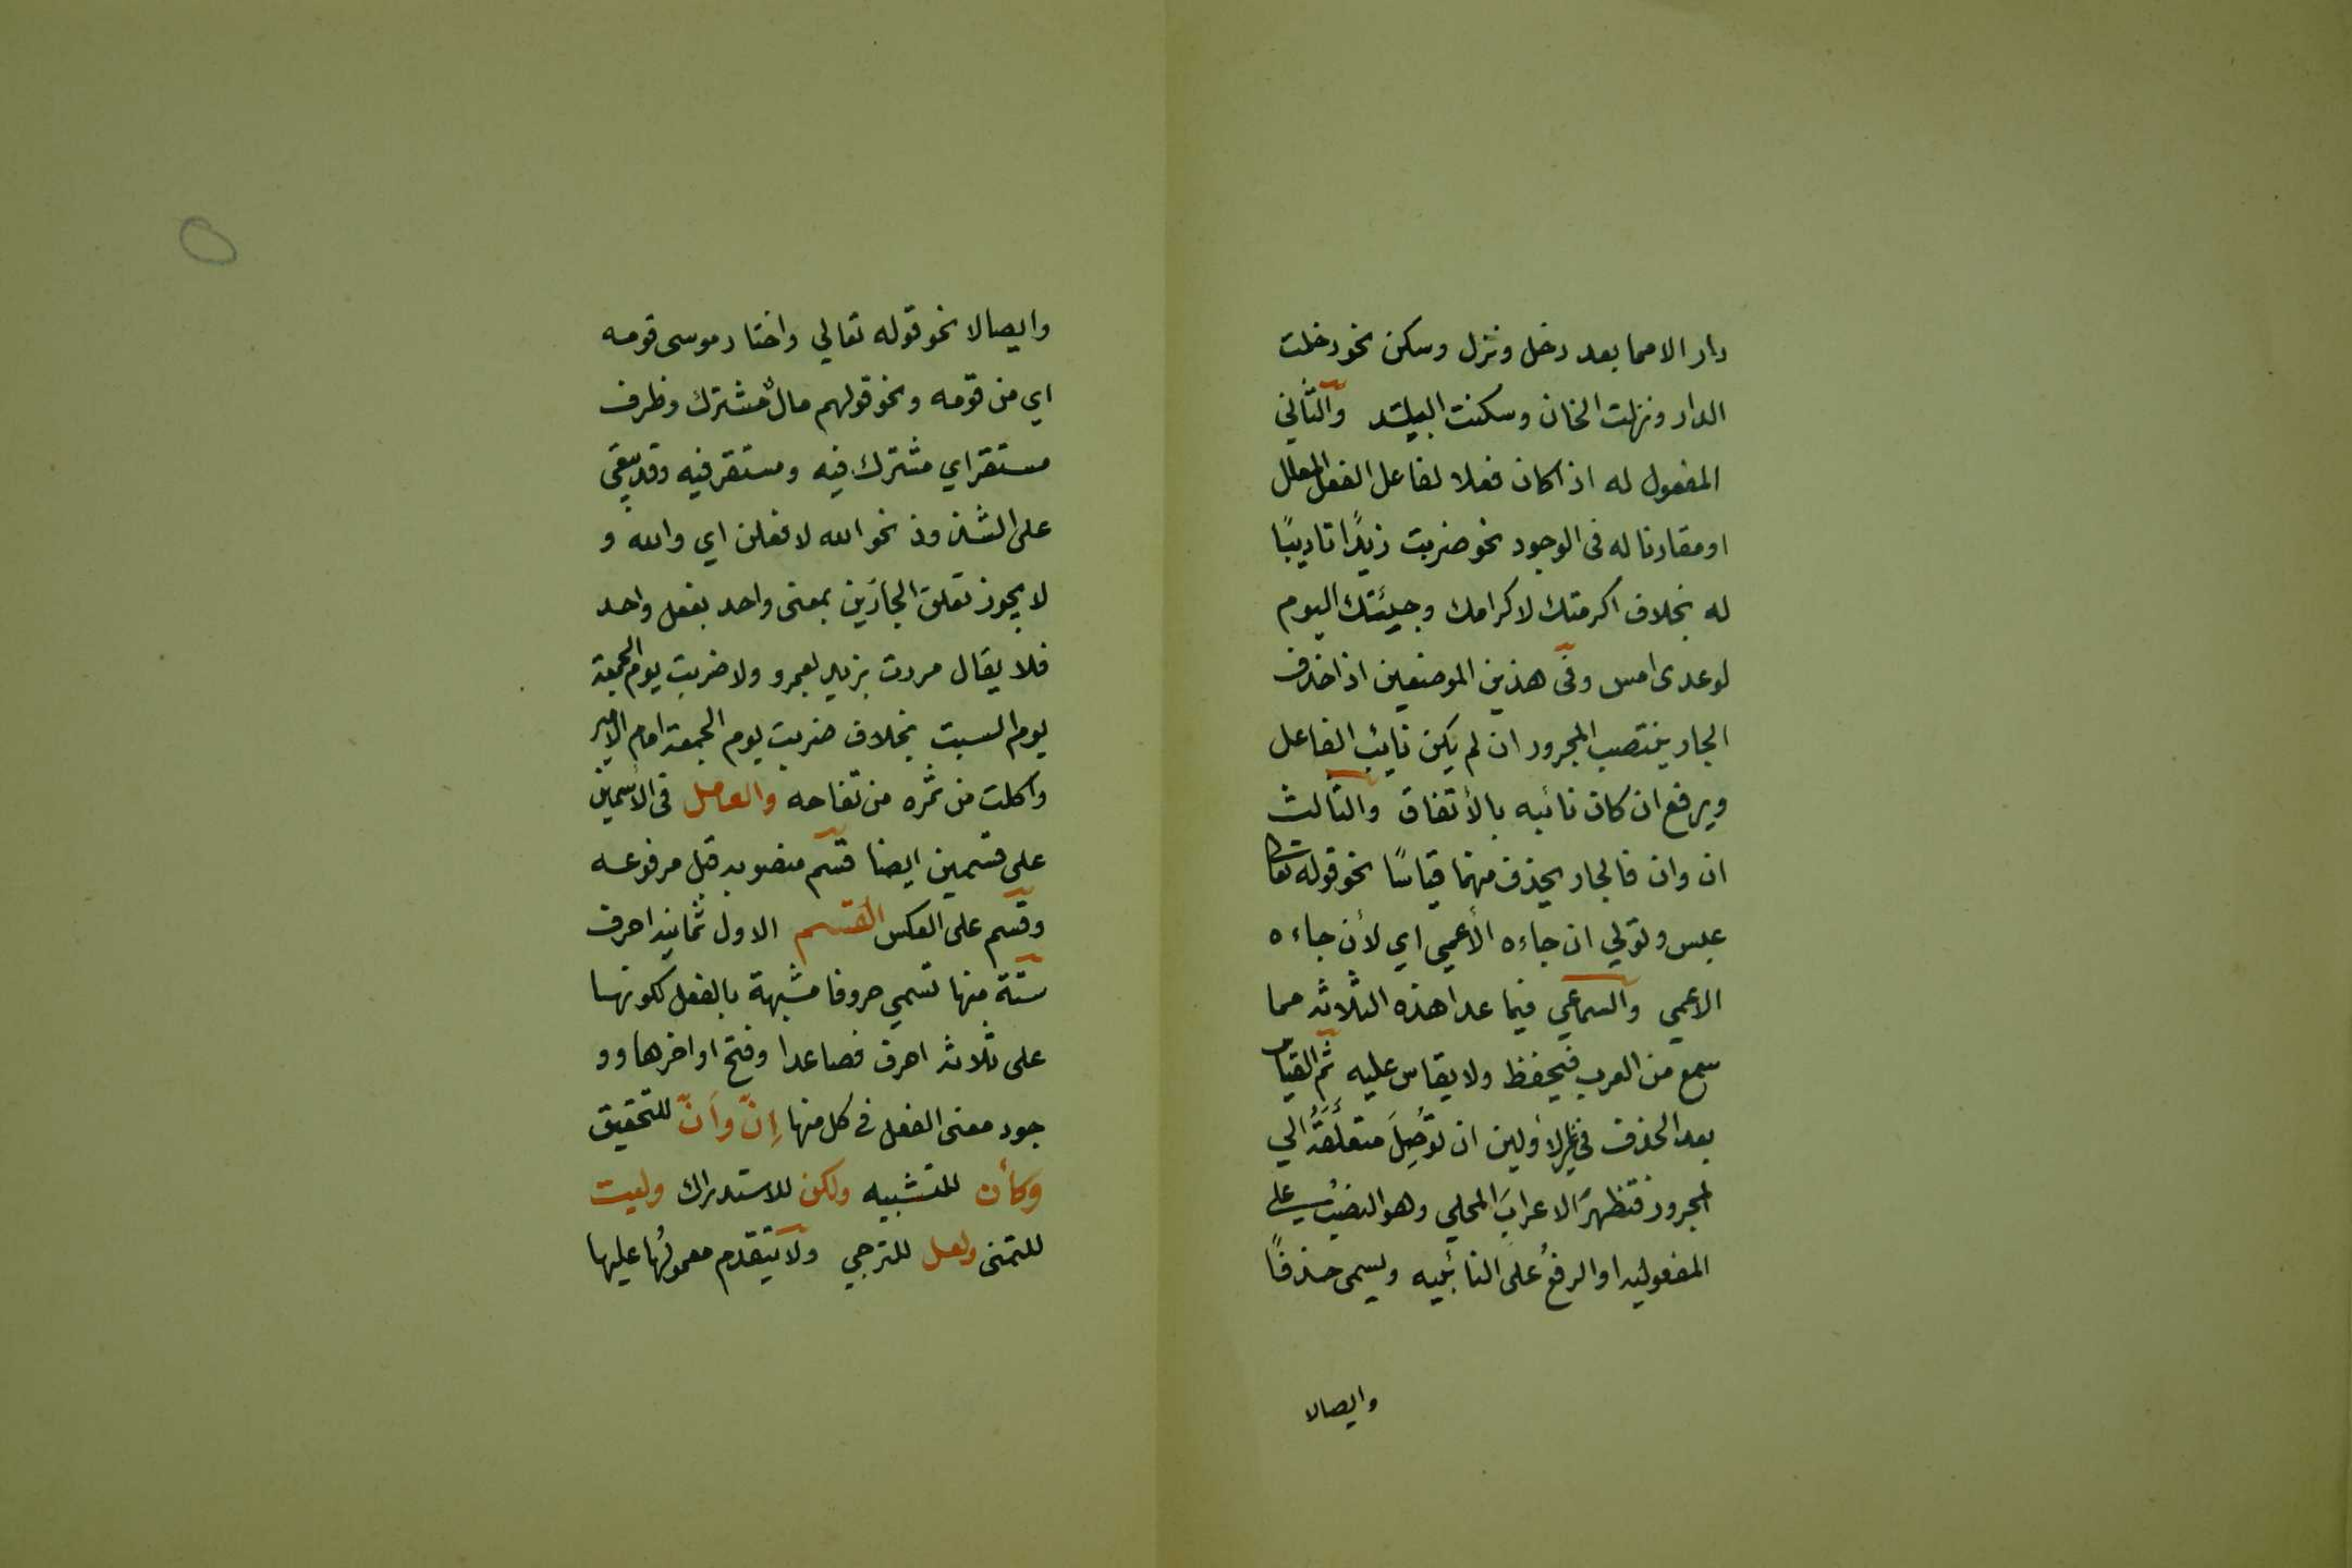 دار الا مما بعد دخل ونزل وسكن نحو دخلت
الدار ونزلت الخان وسكنت البلد والثاني
المفعول له اذا كان فعلا لفاعل الفعل المعلل
او مقارنا له فى الوجود نحو ضربت زيدًا تاديبًا
له بخلاف اكرمتك لاكرامك وجيئتك اليوم
لوعدى امس وفى هذين الموضعين اذا حذف
الجار ينتصب المجرور ان لم يكن نايب الفاعل
ويرفع ان كان نائبه بالأتفاق والثالث
ان وان فالجار يحذف منهما قياسًا نحو قوله تعا
عبس وتولي ان جاءه الأعمي اي لأن جاءه
الاعمي والسماعي فيما عدا هذه الثلاثه مما
سمع من العرب فيحفظ ولا يقاس عليه ثم القياس
بعد الحذف في غير الأولين ان توُصِلَ متعلقَهُ الي
لمجرور فتظهرَ الاعرابَ المحلي وهو النصبُ على
المفعوليه او الرفعُ علَى النائبيه ويسمى حذفًا
وايصالا
وايصالا نحو قوله تعالي واختار موسى قومه
اي من قومه ونحو قولهم مالٌ مشترك وظرف
مستقر اي مشترك فيه ومستقر فيه وقد يبقى
على الشذوذ نحو الله لافعلن اي والله و
لا يجوز تعلق الجارّين بمعنى واحد بفعل واحد
فلا يقال مررت بزيد بعمرو ولا ضربت يوم الجمعة
يوم السبت بخلاف ضربت يوم الجمعة امام الامير
واكلت من ثمره من تفاحه والعامل فى الأسمين
على قسمين ايضا قسم منصوبه قبل مرفوعه
وقسم على العكس القسم الاول ثمانيه احرف
ستة منها تسمي حروفا مشبهة بالفعل لكونها
على ثلاثه احرف فصاعدا وفتح اواخرها وو
جود معنى الفعل في كل منها إنّ وأنّ للتحقيق
وكأن للتشبيه ولكن للاستدراك وليت
للتمنى ولعل للترجي ولا يتقدم معمولُها عليها